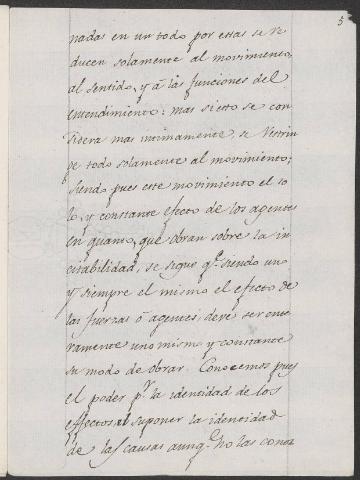 5
nadas en un todo por estas se re
ducen solamente al movimiento,
al sentido, y á las funciones del
entendimiento: mas si esto se con
sidera mas intimamente, se restrin
ge todo solamente al movimiento;
siendo pues este movimiento el so
lo, y constante efecto de los agentes
en quanto, que obran sobre la in
citabilidad, se sigue qe. siendo uno
y siempre el mismo el efecto de
las fuerzas ó agentes, deve ser ente
ramente uno mismo y constante
su modo de obrar. Conocemos pues
el poder pr. la identidad de los
effectos, al suponer la identidad
de las causas aunqe. no las conoz